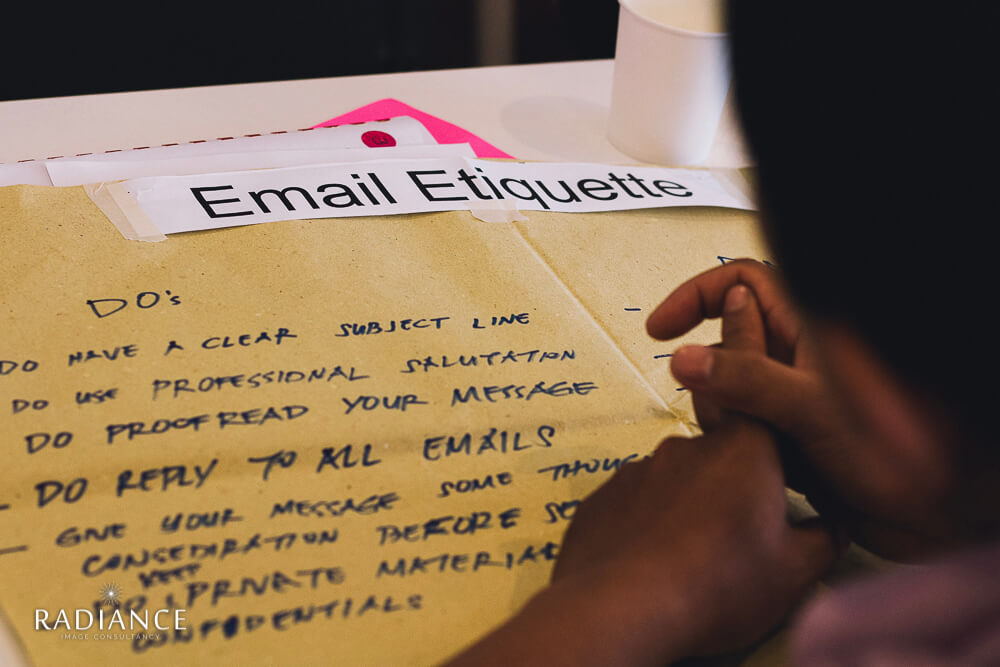 Email Etiquette
DO's
DO HAVE A CLEAR SUBJECT LINE
DO USE PROFESSIONAL SALUTATION
DO PROOFREAD YOUR MESSAGE
- DO REPLY TO ALL EMAILS
- GIVE YOUR MESSAGE SOME
CONSEDIRATION BEFORE
KEEP
PRIVATE
CONFIDENTIALS
RADIANCE
IMAGE CONSULTANCY